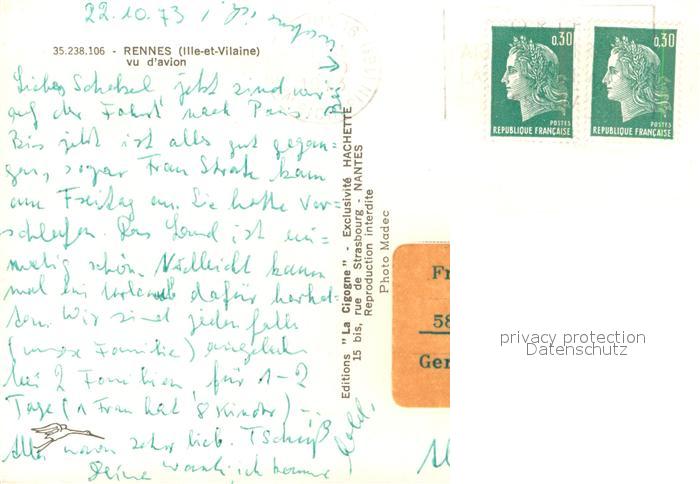 22.10.73
35.238.106 - RENNES (Ille-et-Vilaine)
vu d'avion
Liebes jetzt sind wir
auf der Fahrt nach Paris.
Bis jetzt ist alles gut gegan-
gen, sogar Frau kam
am Freitag an. Sie hatte ver-
schlafen. Das Land ist ein-
malig schön. Vielleicht kann
mal ein Urlaub dafür herhal-
ten. Wir sind jedenfalls
(unsere Familie) eingeladen
bei 2 Familien für 1-2
Tage (1 Frau hat 8 Kinder)
Alle waren sehr lieb. Tschüß
Deine
bald.
Editions "La Cigogne" - Exclusivité HACHETTE
15 bis, rue de Strasbourg - NANTES
Reproduction interdite
Photo Madec
0,30
POSTES
REPUBLIQUE FRANÇAISE
0,30
POSTES
REPUBLIQUE FRANÇAISE
Fr
58
Ger
privacy protection
Datenschutz